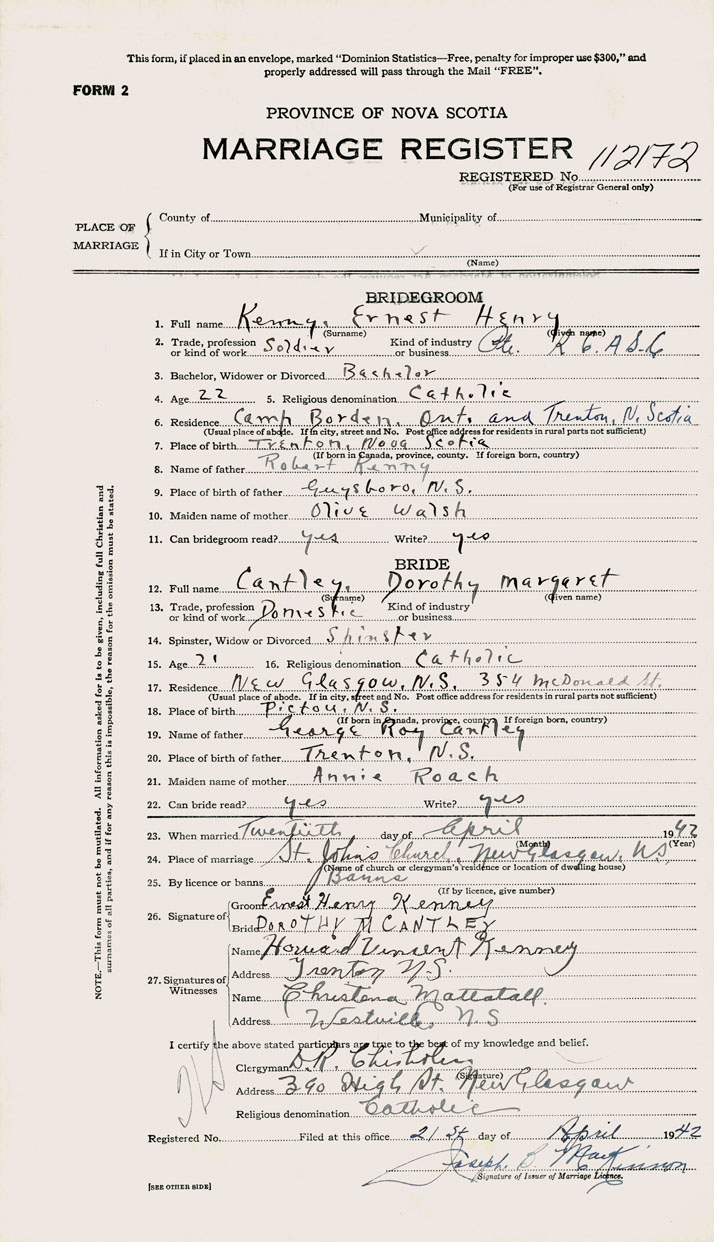 This form, if placed in an envelope, marked “Dominion Statistics—Free, penalty for improper use $300,” and
properly addressed will pass through the Mail “FREE”.
FORM 2
PROVINCE OF NOVA SCOTIA
MARRIAGE REGISTER
REGISTERED No. 112172
(For use of Registrar General only)
PLACE OF MARRIAGE
County of Municipality of
If in City or Town
(Name)
BRIDEGROOM
1. Full name Kenny, Ernest Henry
(Surname) (Given name)
2. Trade, profession or kind of work Soldier Kind of industry or business Pte. R C. A S. C
3. Bachelor, Widower or Divorced Bachelor
4. Age 22 5. Religious denomination Catholic
6. Residence Camp Borden, Ont. and Trenton, N. Scotia
(Usual place of abode. If in city, street and No. Post office address for residents in rural parts not sufficient)
7. Place of birth Trenton, Nova Scotia
(If born in Canada, province, county. If foreign born, country)
8. Name of father Robert Kenny
9. Place of birth of father Guysboro, N.S.
10. Maiden name of mother Olive Walsh
11. Can bridegroom read? yes Write? yes
BRIDE
12. Full name Cantley, Dorothy margaret
(Surname) (Given name)
13. Trade, profession or kind of work Domestic Kind of industry or business
14. Spinster, Widow or Divorced Spinster
15. Age 21 16. Religious denomination Catholic
17. Residence New Glasgow, N.S. 354 McDonald St.
(Usual place of abode. If in city, street and No. Post office address for residents in rural parts not sufficient)
18. Place of birth Pictou, N.S.
(If born in Canada, province, county. If foreign born, country)
19. Name of father George Roy Cantley
20. Place of birth of father Trenton, N.S.
21. Maiden name of mother Annie Roach
22. Can bride read? yes Write? yes
23. When married Twentieth day of April 1942
(Month) (Year)
24. Place of marriage St. John's Church, New Glasgow, N.S.
(Name of church or clergyman's residence or location of dwelling house)
25. By licence or banns Banns
(If by licence, give number)
26. Signature of
Groom Ernest Henry Kenney
Bride DOROTHY M CANTLEY
27. Signatures of Witnesses
Name Howard Vinsent Kenney
Address Trenton N.S.
Name Christena Mattatall
Address Westville, N.S
I certify the above stated particulars are true to the best of my knowledge and belief.
Clergyman D. R. Chisholm
(Signature)
Address 390 High St. New Glasgow
Religious denomination Catholic
Registered No. Filed at this office 21 st day of April 1942
Joseph B MacKinnon
Signature of Issuer of Marriage Licence.
[SEE OTHER SIDE]
NOTE.—This form must not be mutilated. All information asked for is to be given, including full Christian and
surnames of all parties, and if for any reason this is impossible, the reason for the omission must be stated.